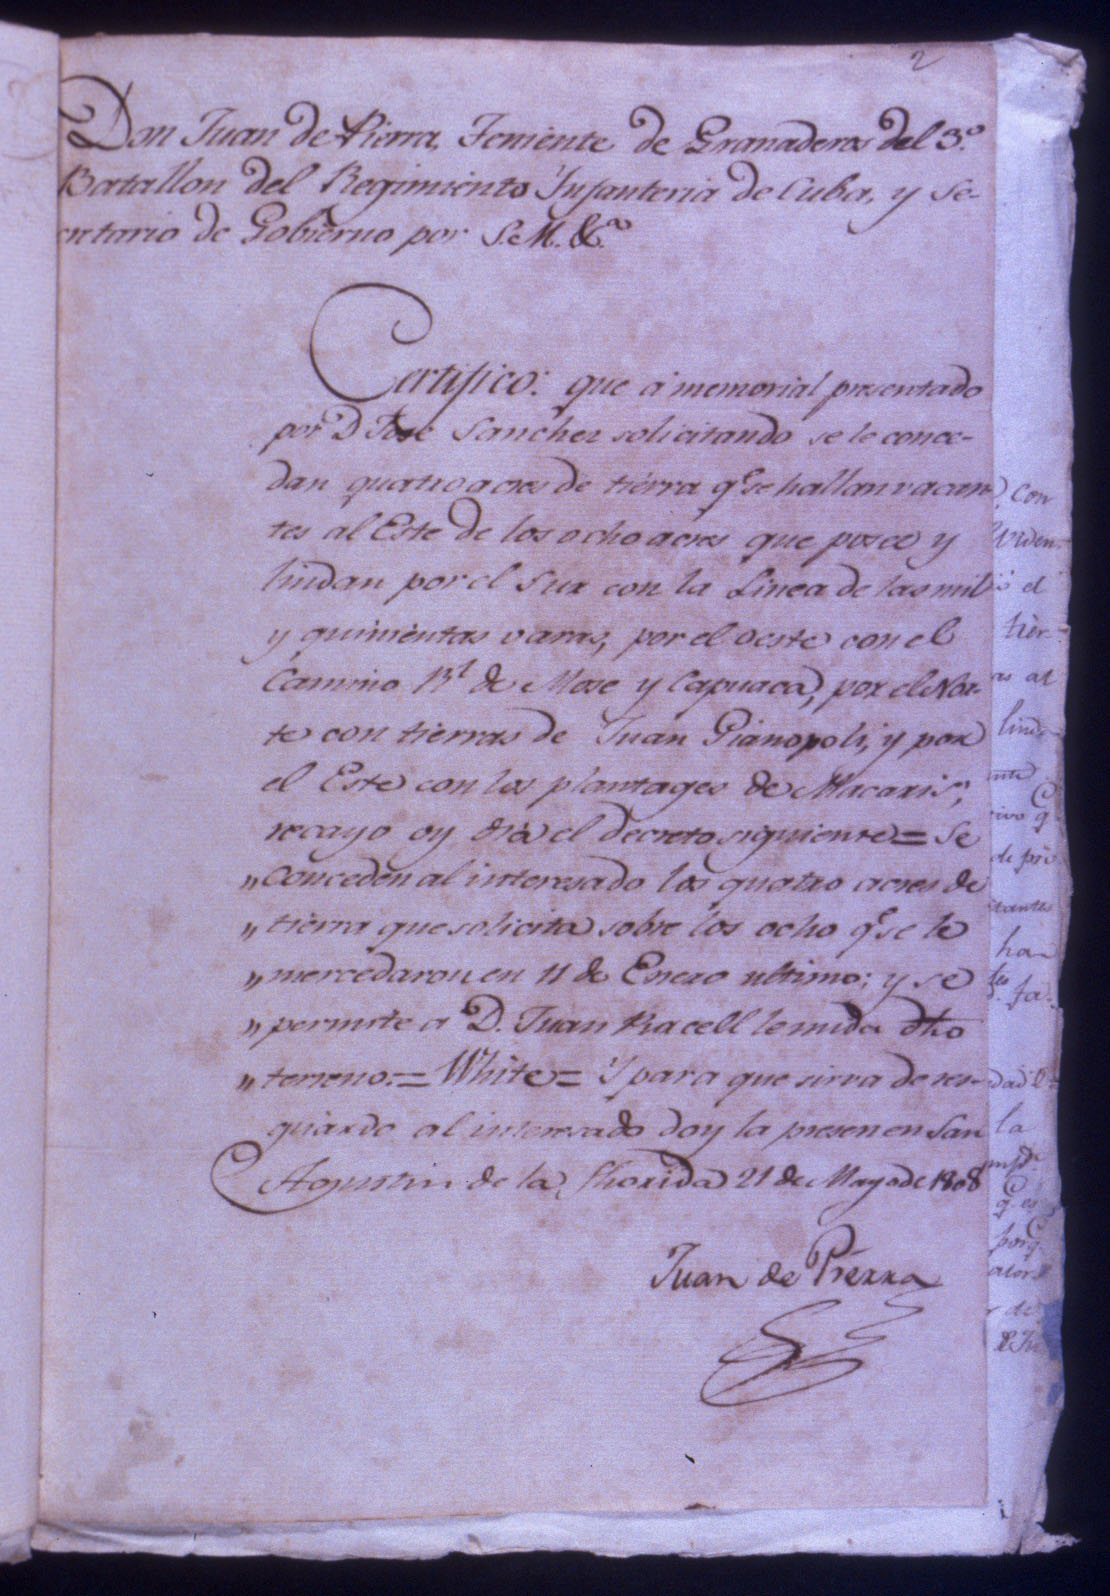 2
Don Juan de Pierra, Teniente de Granaderos del 3.º
Batallon del Regimiento Ynfanteria de Cuba, y Se-
cretario de Gobierno por S.M. &.ª
Certifico: que á memorial presentado
por D Jose Sanchez solicitando se le conce-
dan quatro acres de tierra q.e se hallan vacan-
tes al Este de los ocho acres que posee y
lindan por el Sur con la Linea de las mil
y quinientas varas, por el oeste con el
Camino R.l de Mose y Capuaca, por el Nor-
te con tierras de Juan Gianopoli, y por
el Este con los plantages de Macaris,
recayo oy dia el decreto siguiente = Se
" Conceden al interesado los quatro acres de
" tierra que solicita sobre los ocho q.e se le
" mercedaron en 11 de Enero ultimo; y se
" permite a D. Juan Racell le mida dho
" terreno. = White = Y para que sirva de res-
guardo al interesado doy la presen en San
Agustin de la Florida 21 de Mayo de 1808
Juan de Pierra
con
el
tier-
as al
linda
de pre
ha
fa
la
q.e es
porq.e